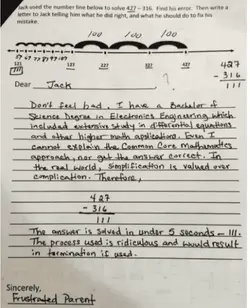 Jack used the number line below to solve 427 - 316. Find his error. Then write a
letter to Jack telling him what he did right, and what he should do to fix his
mistake.
100 100 100
127 227 327 427
427
- 316
111
Dear Jack
Don't feel bad. I have a Bachelor of
Science Degree in Electronics Engineering which
included extensive study in differential equations
and other higher math applications. Even I
cannot explain the Common Core mathematics
approach, nor get the answer correct. In
the real world, simplification is valued over
complication. Therefore,
427
- 316
111
The answer is solved in under 5 seconds — 111.
The process used is ridiculous and would result
in termination if used.
Sincerely,
Frustrated Parent